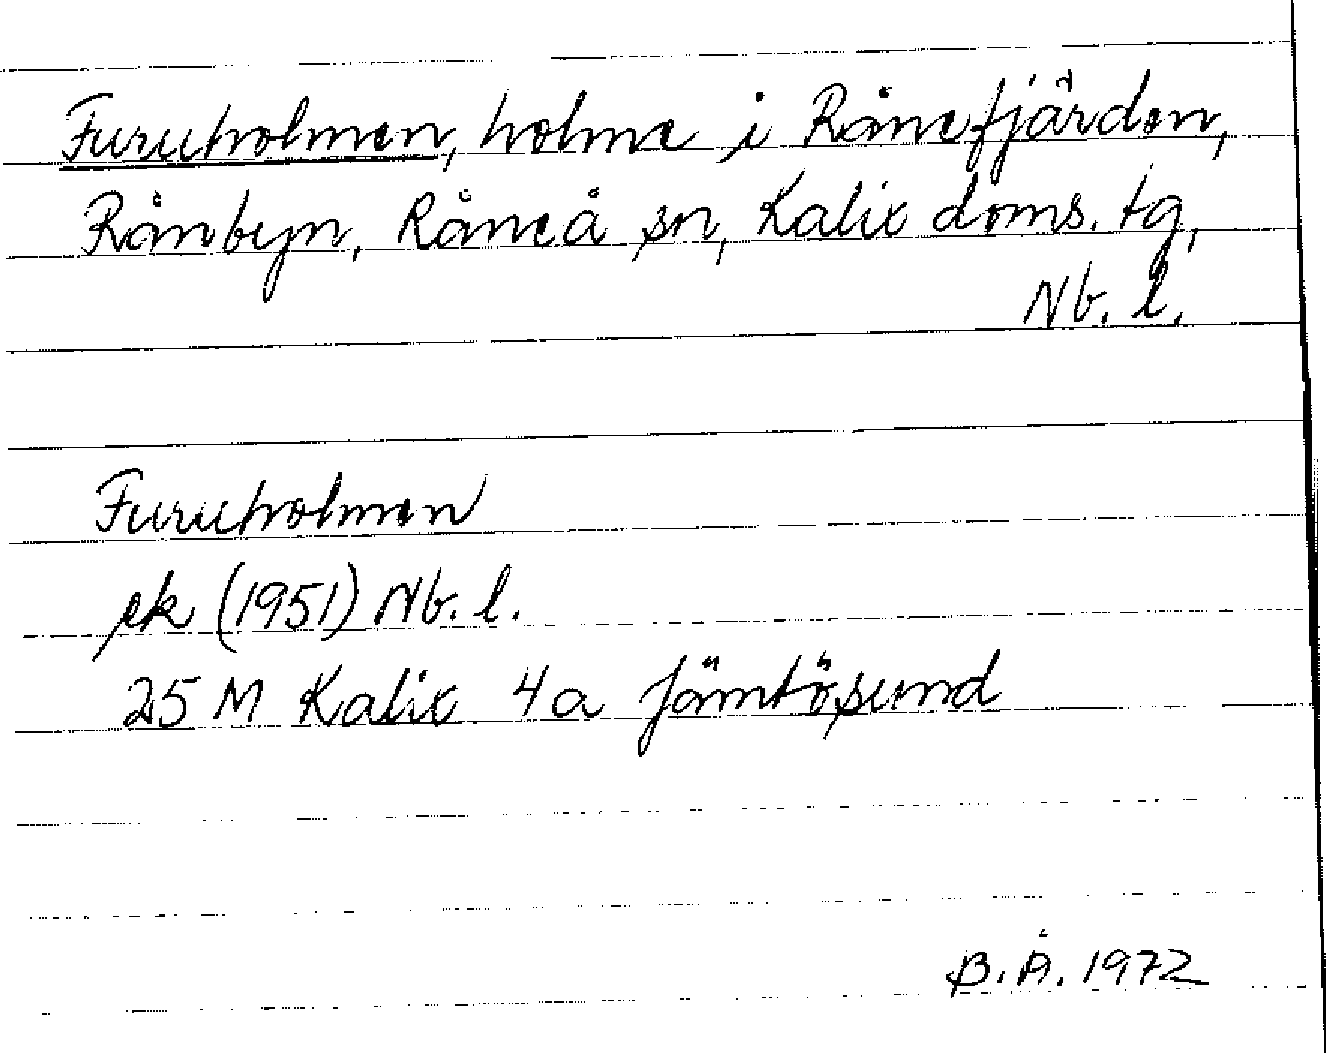 Furuholmen, holme i Rånefjärden,
Rånbyn, Råneå sn, Kalix doms. tg,
Nb. l.
Furuholmen
ek (1951) Nb. l.
25 M Kalix 4a Jämtösund
B. Å. 1972